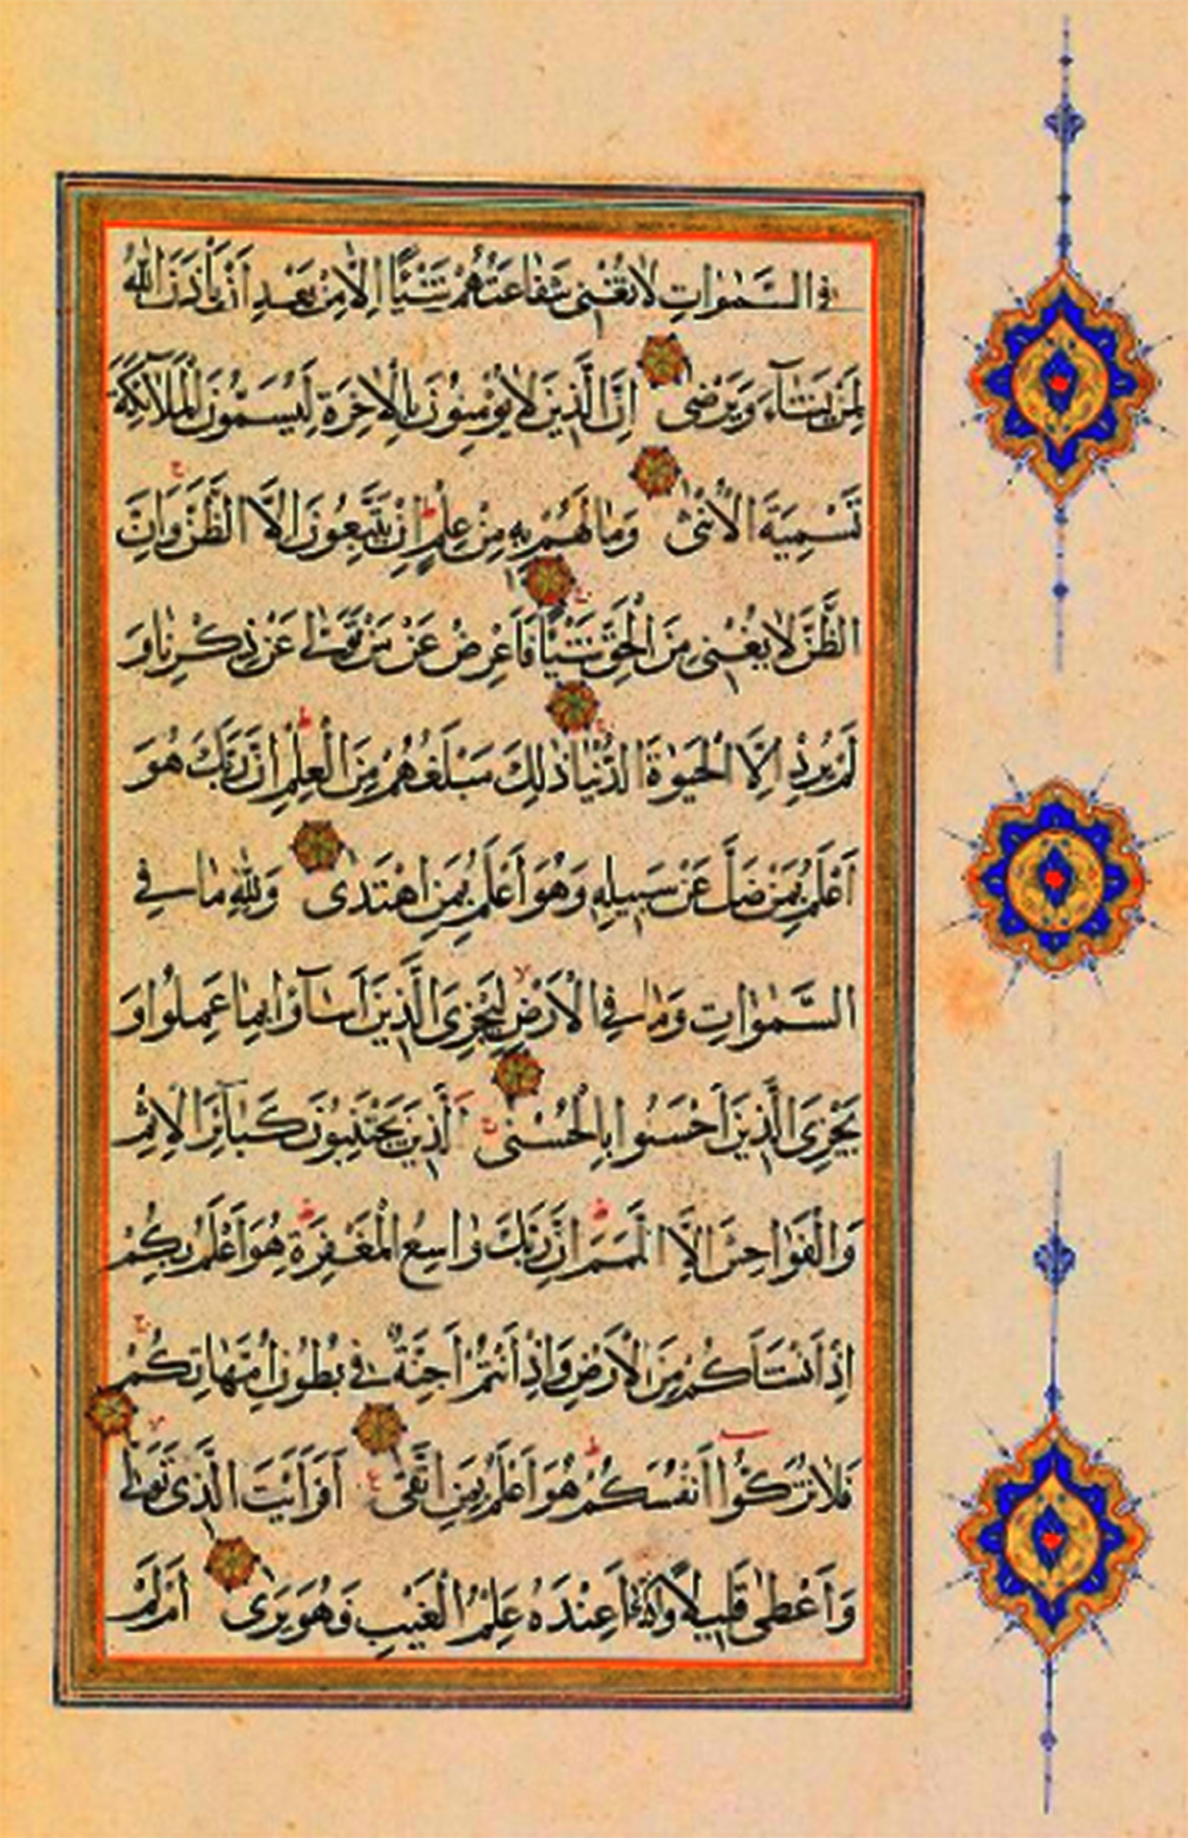 فِى السَّمٰوَاتِ لَا تُغْنِى شَفَاعَتُهُمْ شَيْئًا اِلَّا مِنْ بَعْدِ اَنْ يَأْذَنَ اللّٰهُ
لِمَنْ يَشَآءُ وَيَرْضٰى اِنَّ الَّذِينَ لَا يُؤْمِنُونَ بِالْاٰخِرَةِ لَيُسَمُّونَ الْمَلٰٓئِكَةَ
تَسْمِيَةَ الْاُنْثٰى وَمَا لَهُمْ بِهِ مِنْ عِلْمٍ اِنْ يَتَّبِعُونَ اِلَّا الظَّنَّ وَاِنَّ
الظَّنَّ لَا يُغْنِى مِنَ الْحَقِّ شَيْئًا فَاَعْرِضْ عَنْ مَنْ تَوَلّٰى عَنْ ذِكْرِنَا وَ
لَمْ يُرِدْ اِلَّا الْحَيٰوةَ الدُّنْيَا ذٰلِكَ مَبْلَغُهُمْ مِنَ الْعِلْمِ اِنَّ رَبَّكَ هُوَ
اَعْلَمُ بِمَنْ ضَلَّ عَنْ سَبِيلِهِ وَهُوَ اَعْلَمُ بِمَنِ اهْتَدٰى وَلِلّٰهِ مَا فِى
السَّمٰوَاتِ وَمَا فِى الْاَرْضِ لِيَجْزِىَ الَّذِينَ اَسَآؤُا بِمَا عَمِلُوا وَ
يَجْزِىَ الَّذِينَ اَحْسَنُوا بِالْحُسْنٰى اَلَّذِينَ يَجْتَنِبُونَ كَبَآئِرَ الْاِثْمِ
وَالْفَوَاحِشَ اِلَّا اللَّمَمَ اِنَّ رَبَّكَ وَاسِعُ الْمَغْفِرَةِ هُوَ اَعْلَمُ بِكُمْ
اِذْ اَنْشَاَكُمْ مِنَ الْاَرْضِ وَاِذْ اَنْتُمْ اَجِنَّةٌ فِى بُطُونِ اُمَّهَاتِكُمْ
فَلَا تُزَكُّوا اَنْفُسَكُمْ هُوَ اَعْلَمُ بِمَنِ اتَّقٰى اَفَرَاَيْتَ الَّذِى تَوَلّٰى
وَاَعْطٰى قَلِيلًا وَاَكْدٰى اَعِنْدَهُ عِلْمُ الْغَيْبِ فَهُوَ يَرٰى اَمْ لَمْ